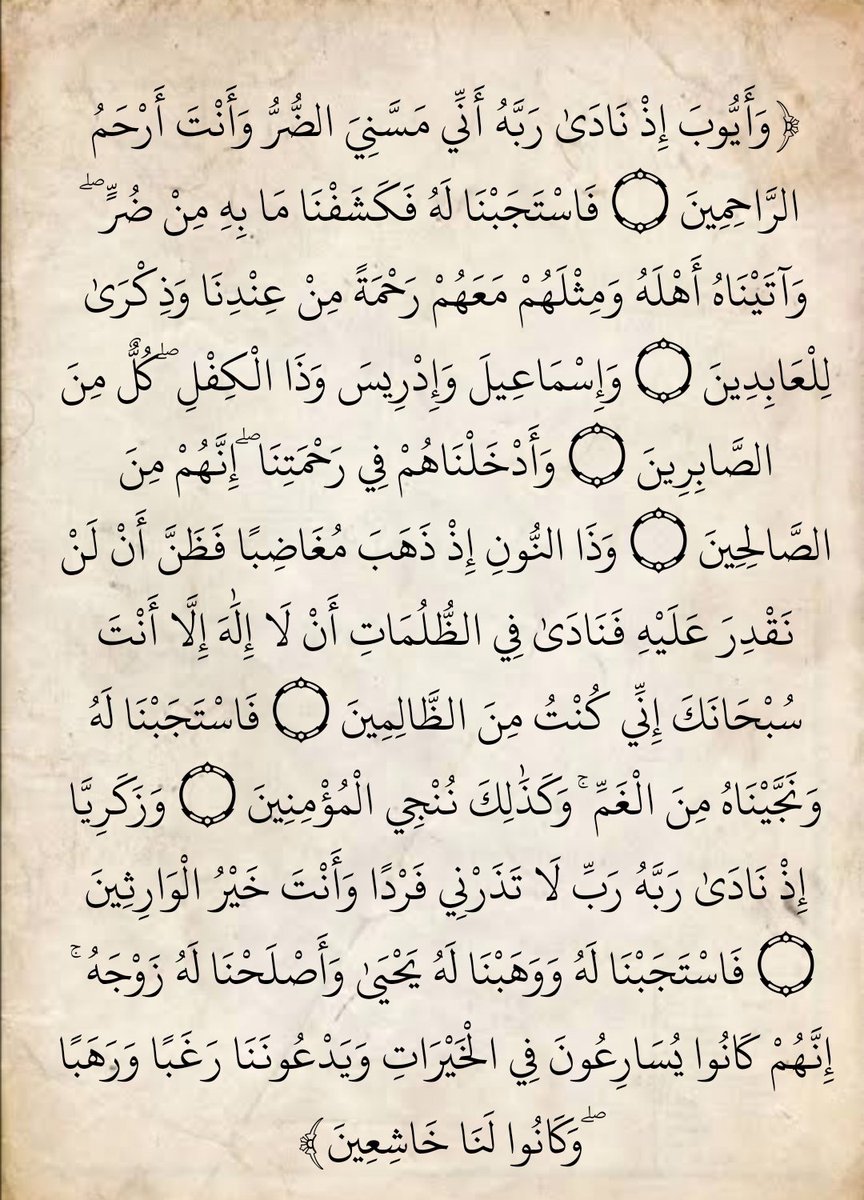 ﴿وَأَيُّوبَ إِذْ نَادَىٰ رَبَّهُ أَنِّي مَسَّنِيَ الضُّرُّ وَأَنْتَ أَرْحَمُ
الرَّاحِمِينَ ۝ فَاسْتَجَبْنَا لَهُ فَكَشَفْنَا مَا بِهِ مِنْ ضُرٍّ ۖ
وَآتَيْنَاهُ أَهْلَهُ وَمِثْلَهُمْ مَعَهُمْ رَحْمَةً مِنْ عِنْدِنَا وَذِكْرَىٰ
لِلْعَابِدِينَ ۝ وَإِسْمَاعِيلَ وَإِدْرِيسَ وَذَا الْكِفْلِ ۖ كُلٌّ مِنَ
الصَّابِرِينَ ۝ وَأَدْخَلْنَاهُمْ فِي رَحْمَتِنَا ۖ إِنَّهُمْ مِنَ
الصَّالِحِينَ ۝ وَذَا النُّونِ إِذْ ذَهَبَ مُغَاضِبًا فَظَنَّ أَنْ لَنْ
نَقْدِرَ عَلَيْهِ فَنَادَىٰ فِي الظُّلُمَاتِ أَنْ لَا إِلَٰهَ إِلَّا أَنْتَ
سُبْحَانَكَ إِنِّي كُنْتُ مِنَ الظَّالِمِينَ ۝ فَاسْتَجَبْنَا لَهُ
وَنَجَّيْنَاهُ مِنَ الْغَمِّ ۚ وَكَذَٰلِكَ نُنْجِي الْمُؤْمِنِينَ ۝ وَزَكَرِيَّا
إِذْ نَادَىٰ رَبَّهُ رَبِّ لَا تَذَرْنِي فَرْدًا وَأَنْتَ خَيْرُ الْوَارِثِينَ
۝ فَاسْتَجَبْنَا لَهُ وَوَهَبْنَا لَهُ يَحْيَىٰ وَأَصْلَحْنَا لَهُ زَوْجَهُ ۚ
إِنَّهُمْ كَانُوا يُسَارِعُونَ فِي الْخَيْرَاتِ وَيَدْعُونَنَا رَغَبًا وَرَهَبًا
ۖ وَكَانُوا لَنَا خَاشِعِينَ﴾